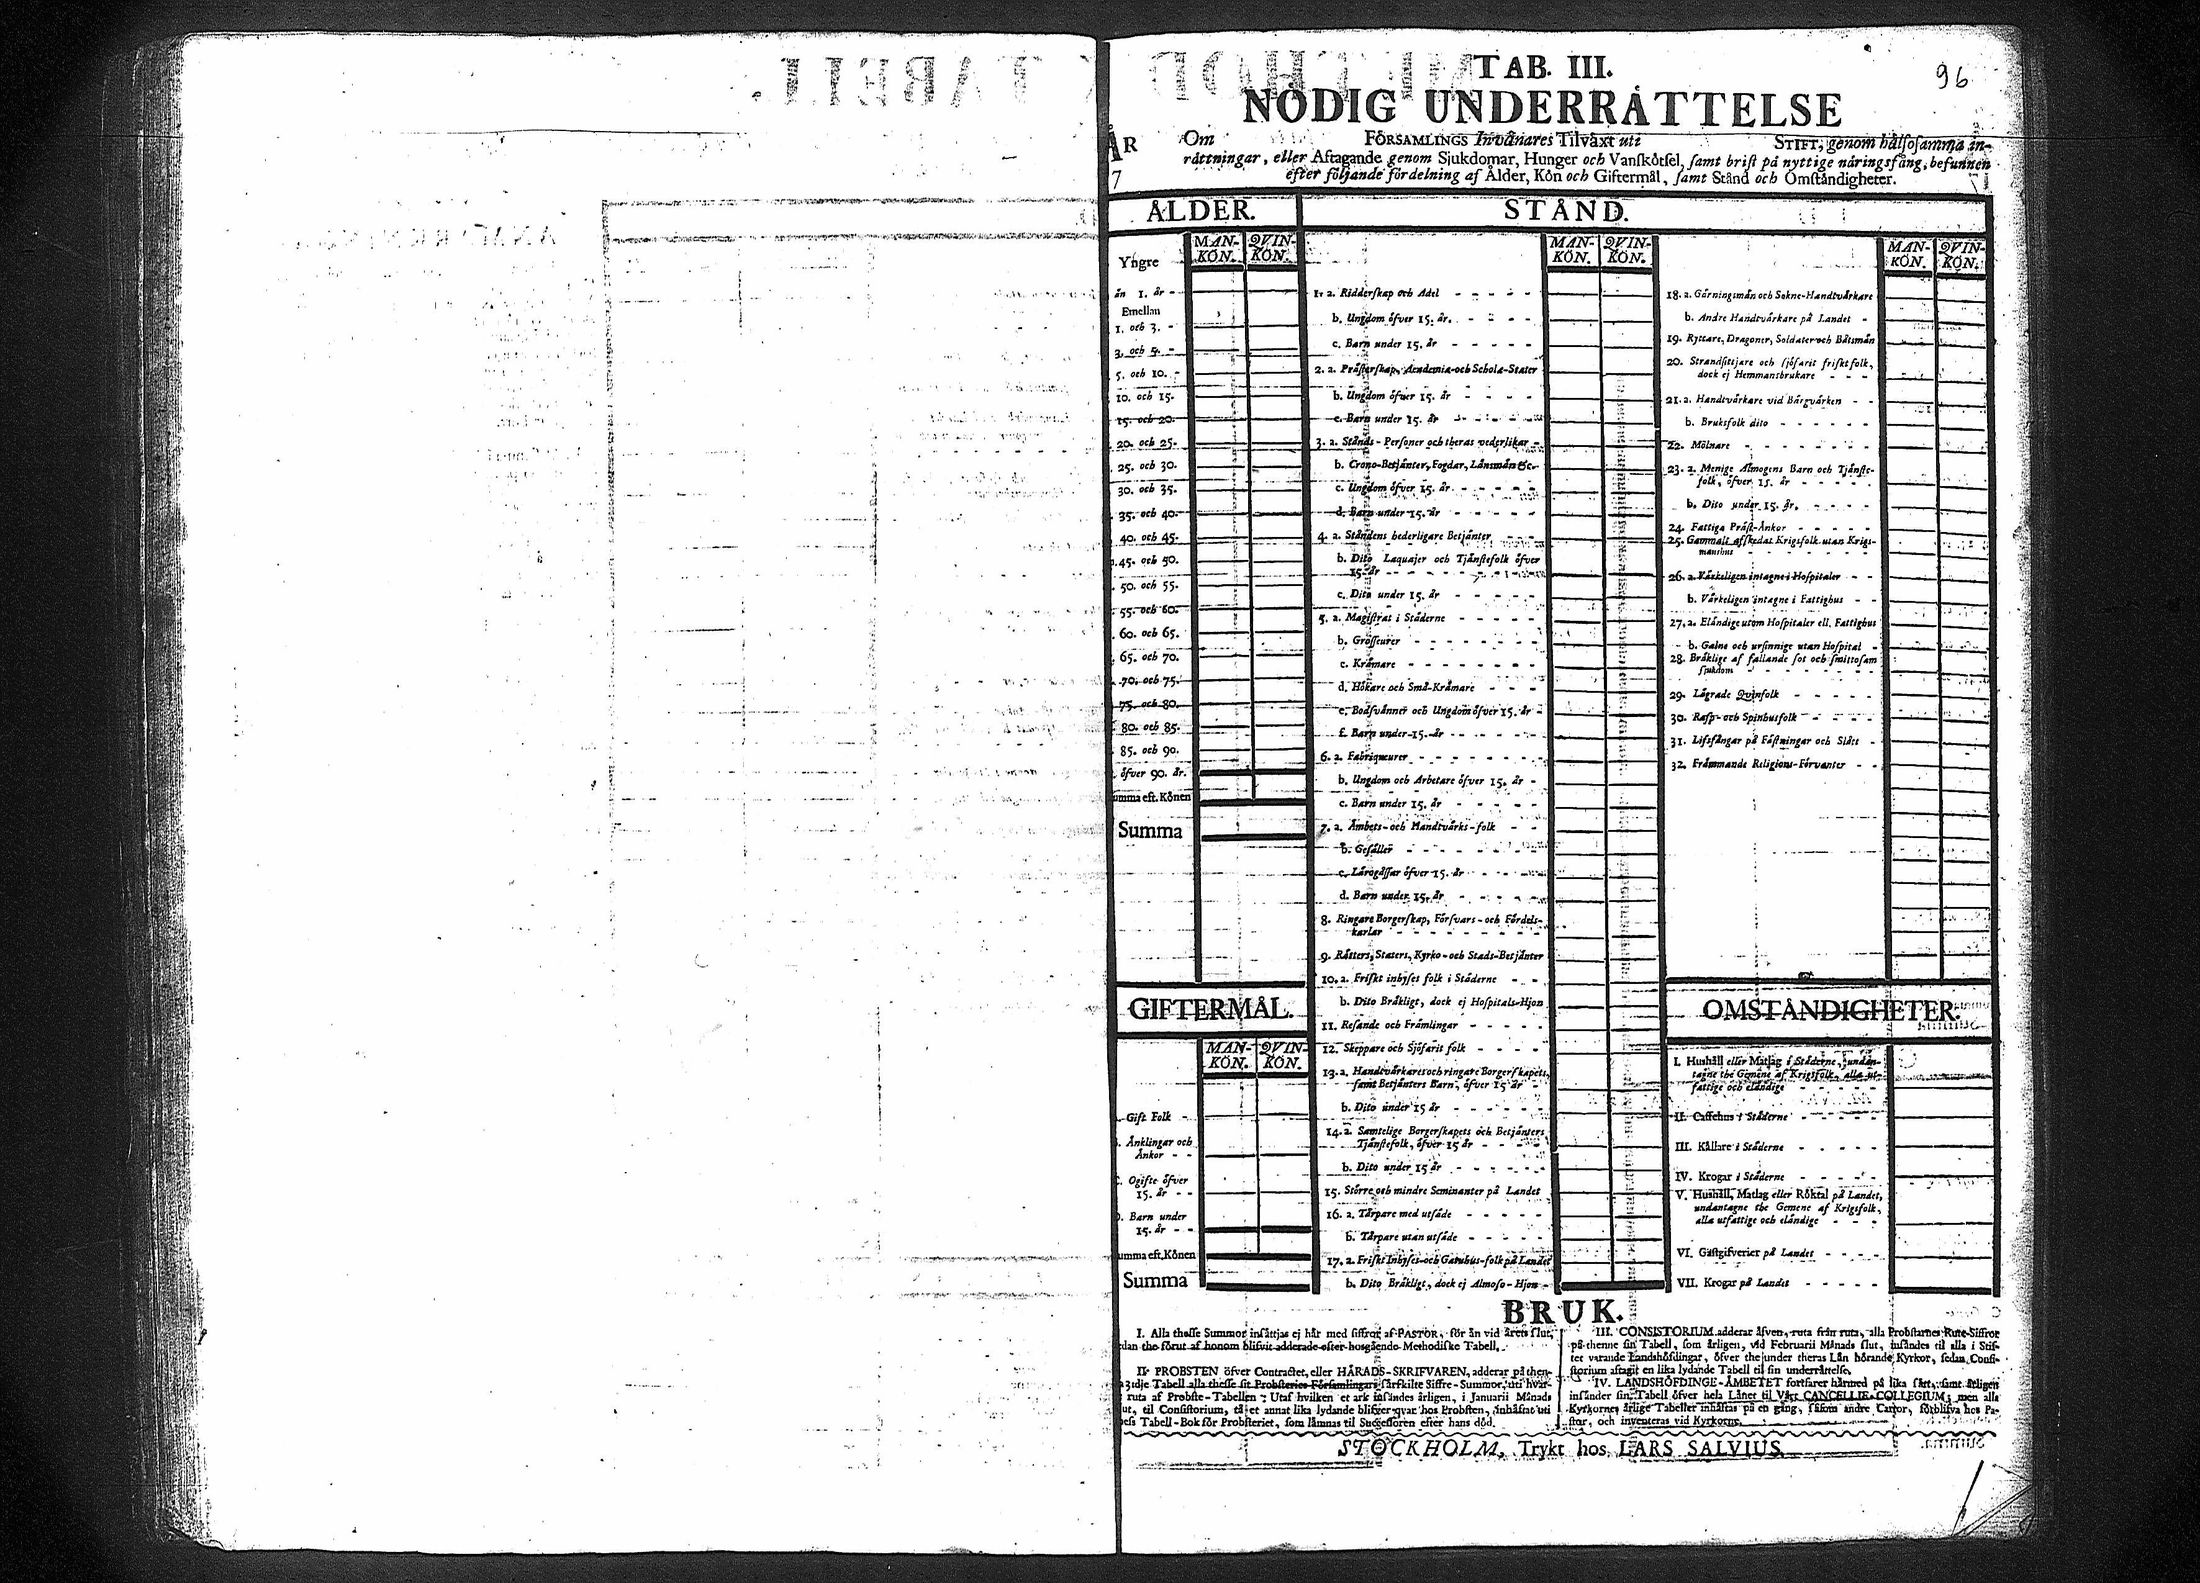 96
TAB. III.
NÖDIG UNDERRÅTTELSE
ÅR
17
Om FÖRSAMLINGS Invånares Tilväxt uti STIFT, genom hälsosamma in-
rättningar, eller Aftagande genom Sjukdomar, Hunger och Vanskötsel, samt brist på nyttige näringsfång, befunnen
efter följande fördelning af Ålder, Kön och Giftermål, samt Stånd och Omständigheter.
ÅLDER.
Yngre
MAN-KÖN. QVIN-KÖN.
än 1. år -
Emellan
1. och 3. -
3. och 5. -
5. och 10. -
10. och 15.
15. och 20.
20. och 25.
25. och 30.
30. och 35.
35. och 40.
40. och 45.
45. och 50.
50. och 55.
55. och 60.
60. och 65.
65. och 70.
70. och 75.
75. och 80.
80. och 85.
85. och 90.
öfver 90. år.
umma eft. Könen
Summa
GIFTERMÅL.
MAN-KÖN. QVIN-KÖN.
Gift Folk -
Änklingar och
Änkor - -
Ogifte öfver
15. år - -
Barn under
15. år - -
umma eft. Könen
Summa
STÅND.
MAN-KÖN. QVIN-KÖN.
1. a. Ridderskap och Adel
b. Ungdom öfver 15. år.
c. Barn under 15. år
2. a. Prästerskap, Academia- och Schola-Stater
b. Ungdom öfver 15. år
c. Barn under 15. år
3. a. Stånds-Personer och theras vederlikar
b. Crono-Betjänter, Fogdar, Länsmän &c.
c. Ungdom öfver 15. år
d. Barn under 15. år
4. a. Ståndens hederligare Betjänter
b. Dito Laquajer och Tjänstefolk öfver
15. år
c. Dito under 15. år
5. a. Magistrat i Städerne
b. Grosseurer
c. Krämare
d. Hökare och Små-Krämare
e. Bodsvänner och Ungdom öfver 15. år
f. Barn under 15. år
6. a. Fabriqueurer
b. Ungdom och Arbetare öfver 15. år
c. Barn under 15. år
7. a. Ämbets- och Handtvärks-folk
b. Gesäller
c. Lärogåssar öfver 15. år
d. Barn under 15. år
8. Ringare Borgerskap, Försvars- och Fördels-
karlar
9. Rätters, Staters, Kyrko- och Stads-Betjänter
10. a. Friskt inhyses folk i Städerne
b. Dito Bräkligt, dock ej Hospitals-Hjon
11. Resande och Främlingar
12. Skeppare och Sjöfarit folk
13. a. Handtvärkares och ringare Borgerskapets,
samt Betjänters Barn, öfver 15 år
b. Dito under 15 år
14. a. Samtelige Borgerskapets och Betjänters
Tjänstefolk, öfver 15 år
b. Dito under 15 år
15. Större och mindre Seminanter på Landet
16. a. Tårpare med utsäde
b. Tårpare utan utsäde
17. a. Friskt Inhyses- och Gatuhus-folk på Landet
b. Dito Bräkligt, dock ej Almoso-Hjon
MAN-KÖN. QVIN-KÖN.
18. a. Gärningsmän och Sokne-Handtvärkare
b. Andre Handtvärkare på Landet
19. Ryttare, Dragoner, Soldater och Båtsmän
20. Strandsittjare och sjöfarit friskt folk,
dock ej Hemmansbrukare
21. a. Handtvärkare vid Bärgvärken
b. Bruksfolk dito
22. Mölnare
23. a. Menige Almogens Barn och Tjänste-
folk, öfver 15. år
b. Dito under 15. år.
24. Fattiga Präst-Änkor
25. Gammalt afskedat Krigsfolk utan Krigs-
manshus
26. a. Värkeligen intagne i Hospitaler
b. Värkeligen intagne i Fattighus
27. a. Eländige utom Hospitaler ell. Fattighus
b. Galne och ursinnige utan Hospital
28. Bräklige af fallande sot och smittosam
sjukdom
29. Lägrade Qvinfolk
30. Rasp- och Spinhusfolk
31. Lifsfångar på Fästningar och Slått
32. Främmande Religions-Förvanter
OMSTÄNDIGHETER.
I. Hushåll eller Matlag i Städerne, undan-
tagne the Gemene af Krigsfolk, alla ut-
fattige och eländige
II. Caffehus i Städerne
III. Källare i Städerne
IV. Krogar i Städerne
V. Hushåll, Matlag eller Röktal på Landet,
undantagne the Gemene af Krigsfolk,
alla utfattige och eländige
VI. Gästgifverier på Landet
VII. Krogar på Landet
BRUK.
I. Alla thesse Summor insättjas ej här med siffror af PASTOR, för än vid årets slut,
dan the förut af honom blifvit adderade efter hosgående Methodiske Tabell.
II. PROBSTEN öfver Contractet, eller HÄRADS-SKRIFVAREN, adderar på then-
tridje Tabell alla thesse sit Probsteries Församlingars särskilte Siffre-Summor, uti hvar
ruta af Probste-Tabellen: Utaf hvilken et ark insändes årligen, i Januarii Månads
ut, til Consistorium, tå et annat lika lydande blifver qvar hos Probsten, inhäftat uti
ess Tabell-Bok för Probsteriet, som lämnas til Successoren efter hans död.
III. CONSISTORIUM adderar äfven, ruta från ruta, alla Probstarnes Rute-Siffror
på thenne sin Tabell, som årligen, vid Februarii Månads slut, insändes til alla i Stif-
tet varande Landshöfdingar, öfver the under theras Län hörande Kyrkor, sedan Consi-
storium aftagit en lika lydande Tabell til sin underrättelse.
IV. LANDSHÖFDINGE-ÄMBETET fortfarer härmed på lika sätt, samt årligen
insänder sin Tabell öfver hela Länet til Vårt CANCELLIE-COLLEGIUM; men alla
Kyrkornes årlige Tabeller inhäftas på en gång, såsom andre Cartor, förblifva hos Pa-
stor, och inventeras vid Kyrkorne.
STOCKHOLM, Trykt hos LARS SALVIUS.